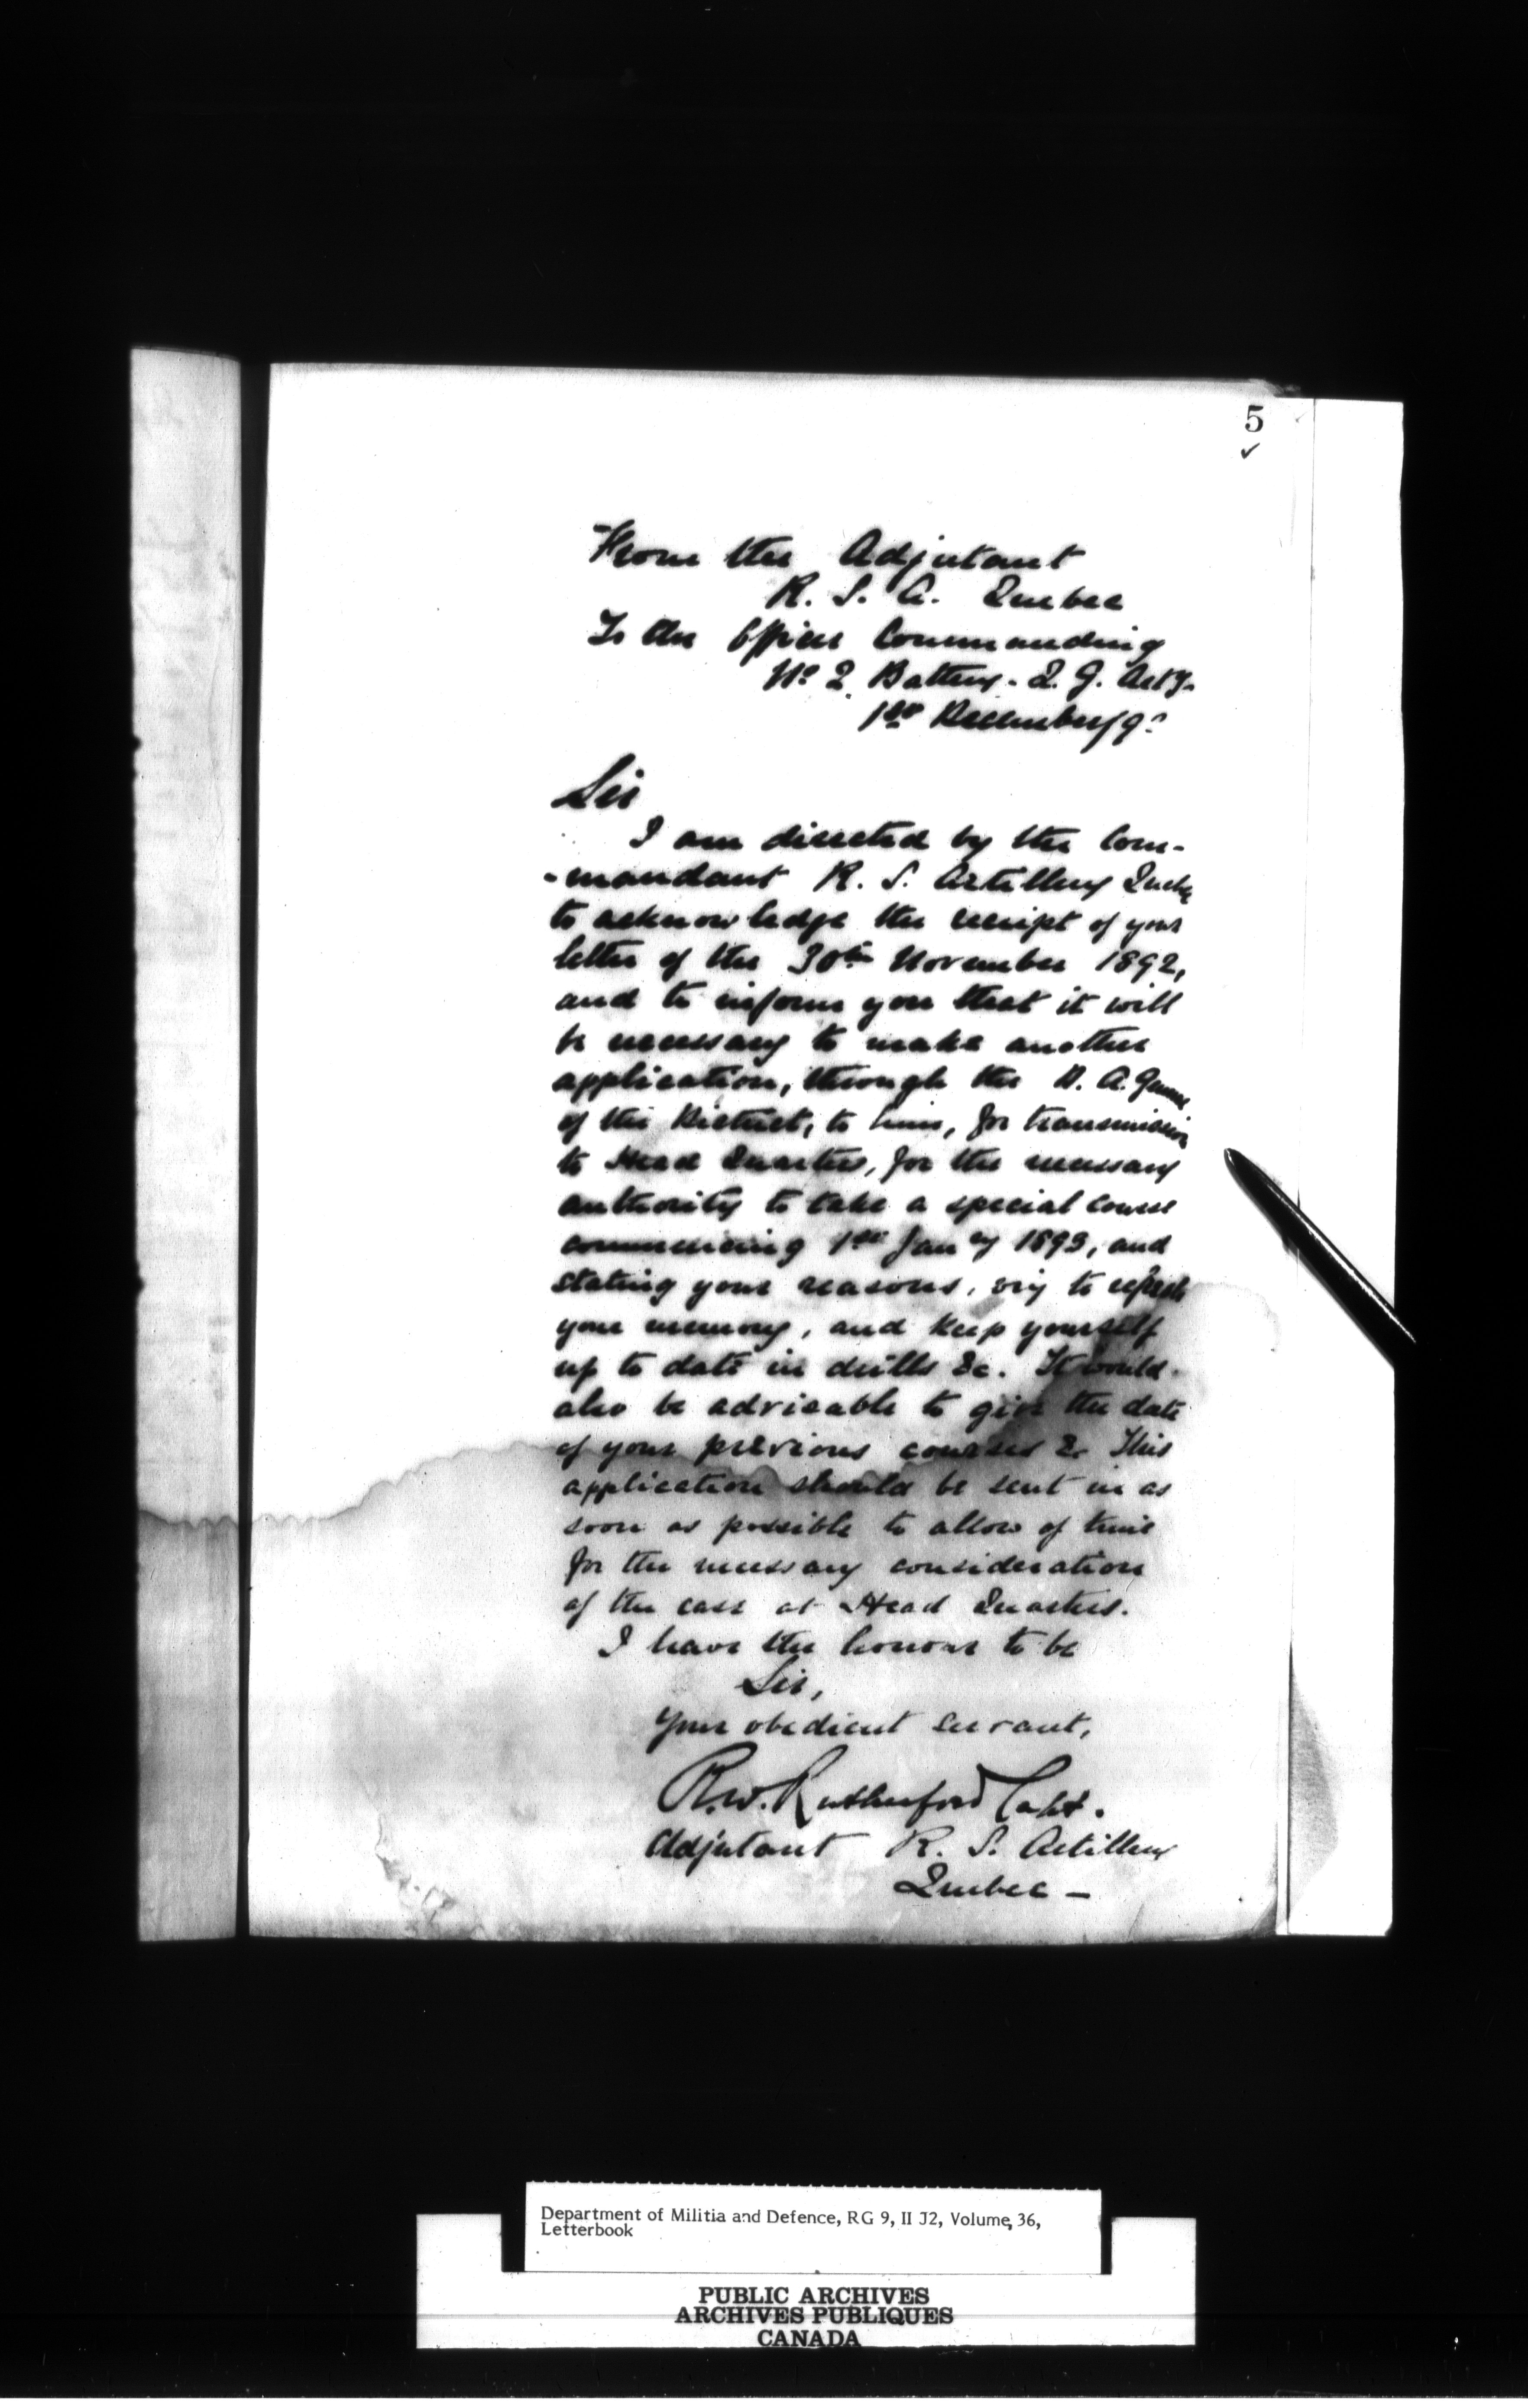 5
From the Adjutant
R. S. A. Quebec
To the Officer Commanding
No 2 Battery. Q. G. Arty.
1st December/92
Sir
I am directed by the Com-
-mandant R. S. Artillery Quebec
to acknowledge the receipt of your
letter of the 30th November 1892,
and to inform you that it will
be necessary to make another
application, through the D. A. General
of the District, to him, for transmission
to Head Quarters, for the necessary
authority to take a special course
commencing 1st Jany 1893, and
stating your reasons, viz to refresh
your memory, and keep yourself
up to date in drills &c. It would
also be advisable to give the date
of your previous courses &c This
application should be sent in as
soon as possible to allow of time
for the necessary consideration
of the case at Head Quarters.
I have the honour to be
Sir,
Your obedient servant,
R.W. Rutherford Capt.
Adjutant R. S. Artillery
Quebec –
Department of Militia and Defence, RG 9, II J2, Volume, 36,
Letterbook
PUBLIC ARCHIVES
ARCHIVES PUBLIQUES
CANADA